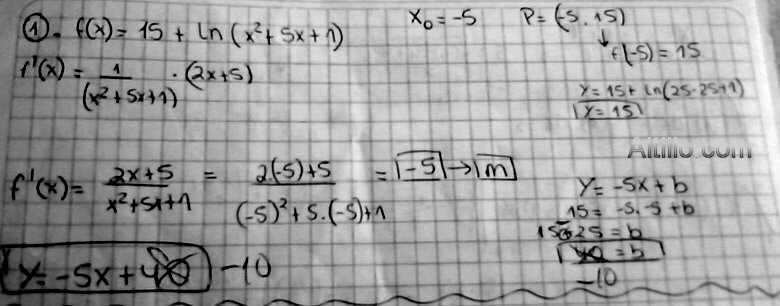 ①. f(x) = 15 + ln (x² + 5x + 1)   x₀ = -5   P = (-5, 15)
↓ f(-5) = 15
f'(x) = 1/(x²+5x+1) · (2x+5)
y = 15 + ln(25-25+1)
y = 15
Altillo.com
f'(x) = (2x+5)/(x²+5x+1) = (2·(-5)+5)/((-5)²+5·(-5)+1) = -5 → m
y = -5x + b
15 = -5·-5 + b
15-25 = b
40 = b
-10
y = -5x + 40 -10